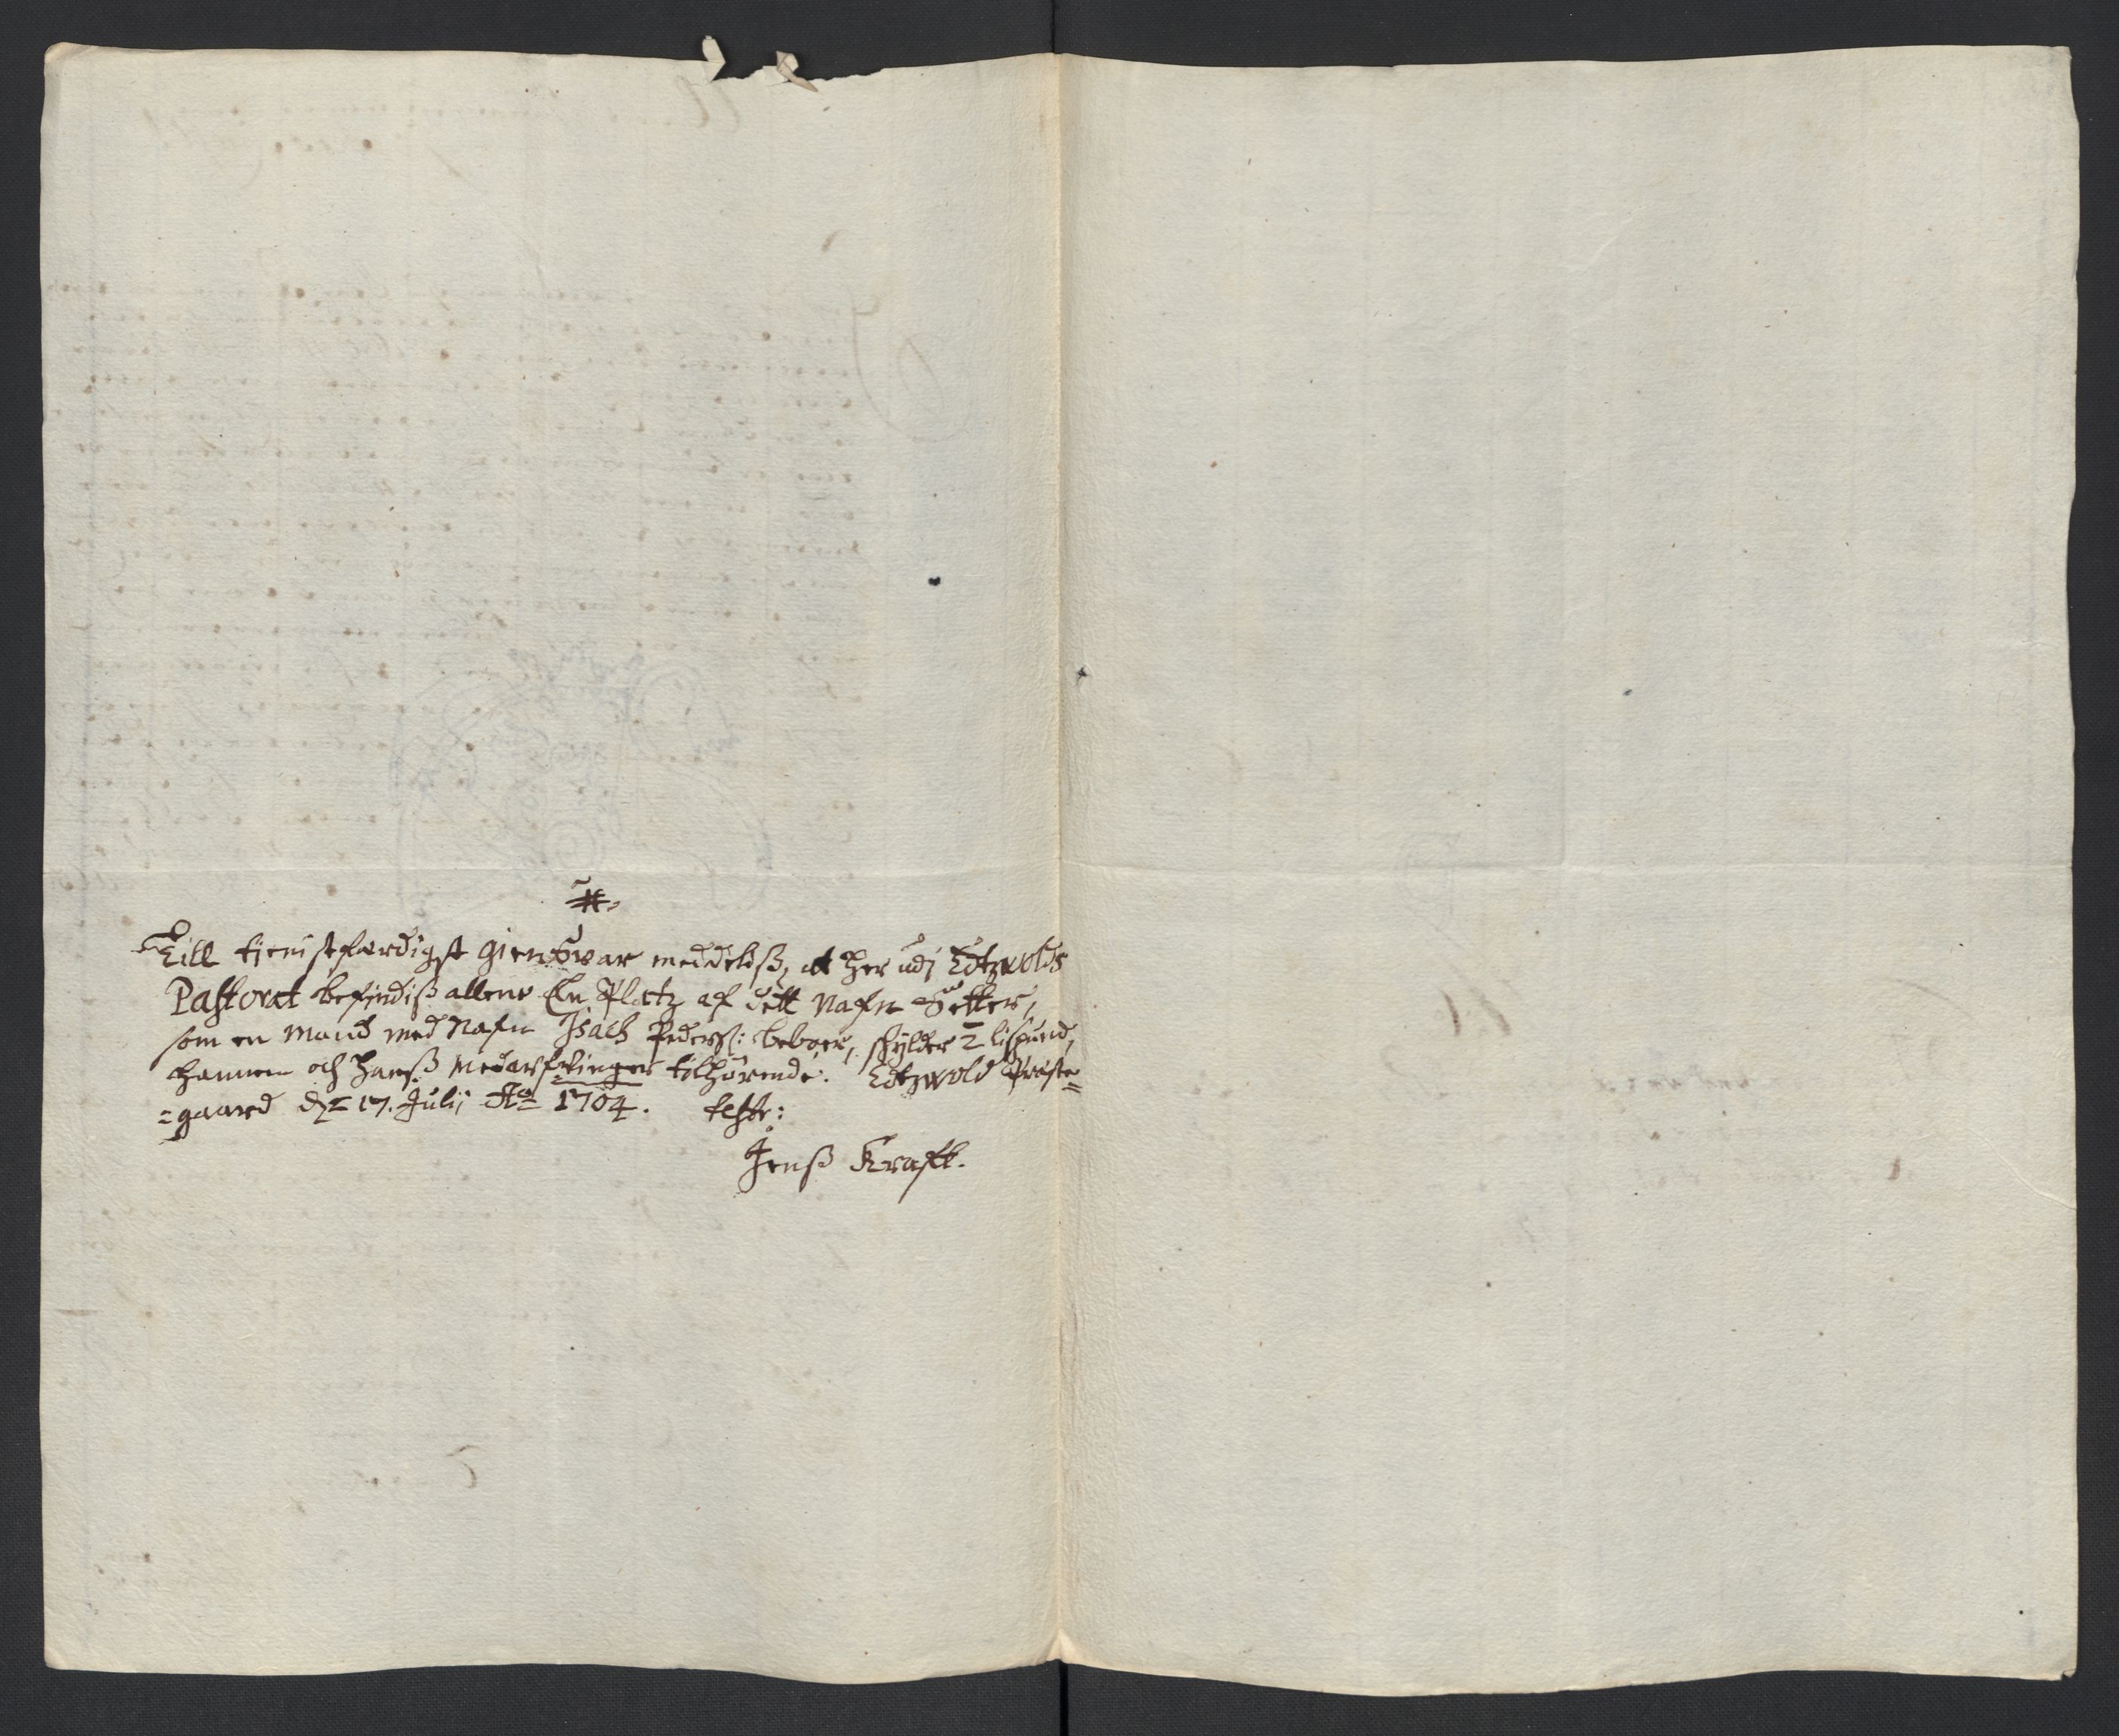 Till tienistferdigst giensvar meddeelß, at her udj Edtzvolds
Pastorat befindiß allene En Platz af dett Nafn Setter,
som en Mand med Nafn Isach Pederß: beboer, skylder 2 lispund,
hannem och hanß Medarfvinger tilhörende. Edtzvold Præste-
-gaard dn 17. Julij Ao 1704. teste:
Jenß Kraft.